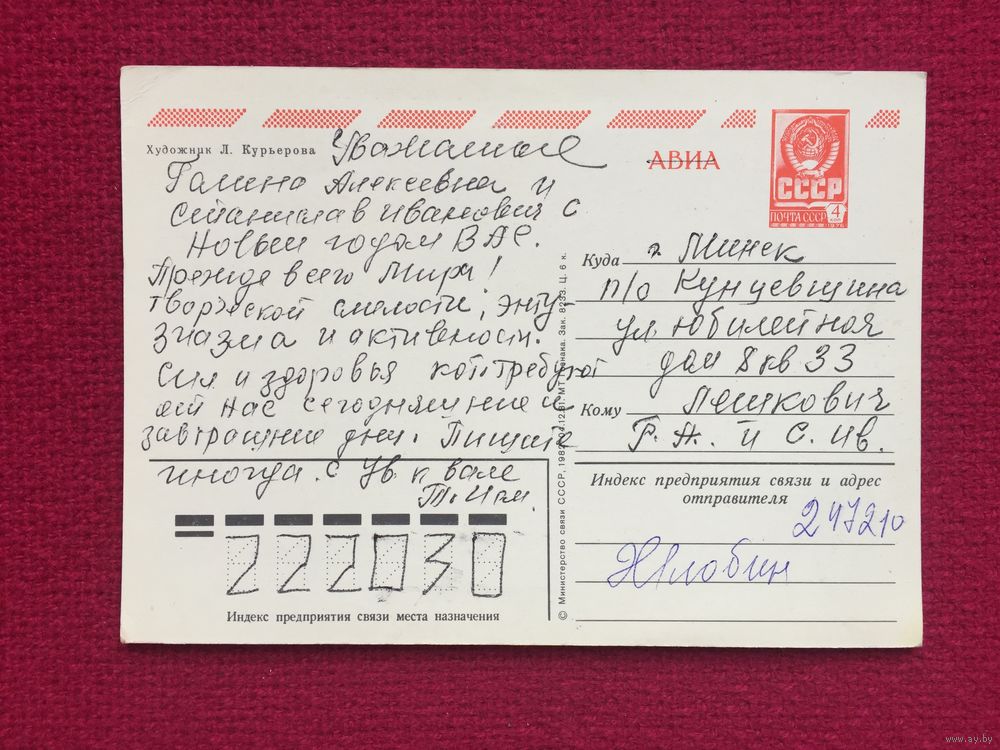 Художник Л. Курьерова
Уважаемые
Галина Алексеевна и
Станислав Иванович с
Новым годом ВАС.
Прежде всего Мира!
творческой смелости, энту
зиазма и активности.
Сил и здоровья кот. требуют
от нас сегодняшние и
завтрашние дни. Пишите
иногда. с ув. к вам
АВИА
СССР
ПОЧТА СССР 4 КОП
1976
Куда г Минск
п/о Кунцевщина
ул Юбилейная
дом 8 кв 33
Кому Пешкович
Г. А. и С. Ив.
Индекс предприятия связи и адрес
отправителя
247210
Жлобин
222030
Индекс предприятия связи места назначения
© Министерство связи СССР, 198 Зак. 8233. Ц. 6 к.
www.ay.by